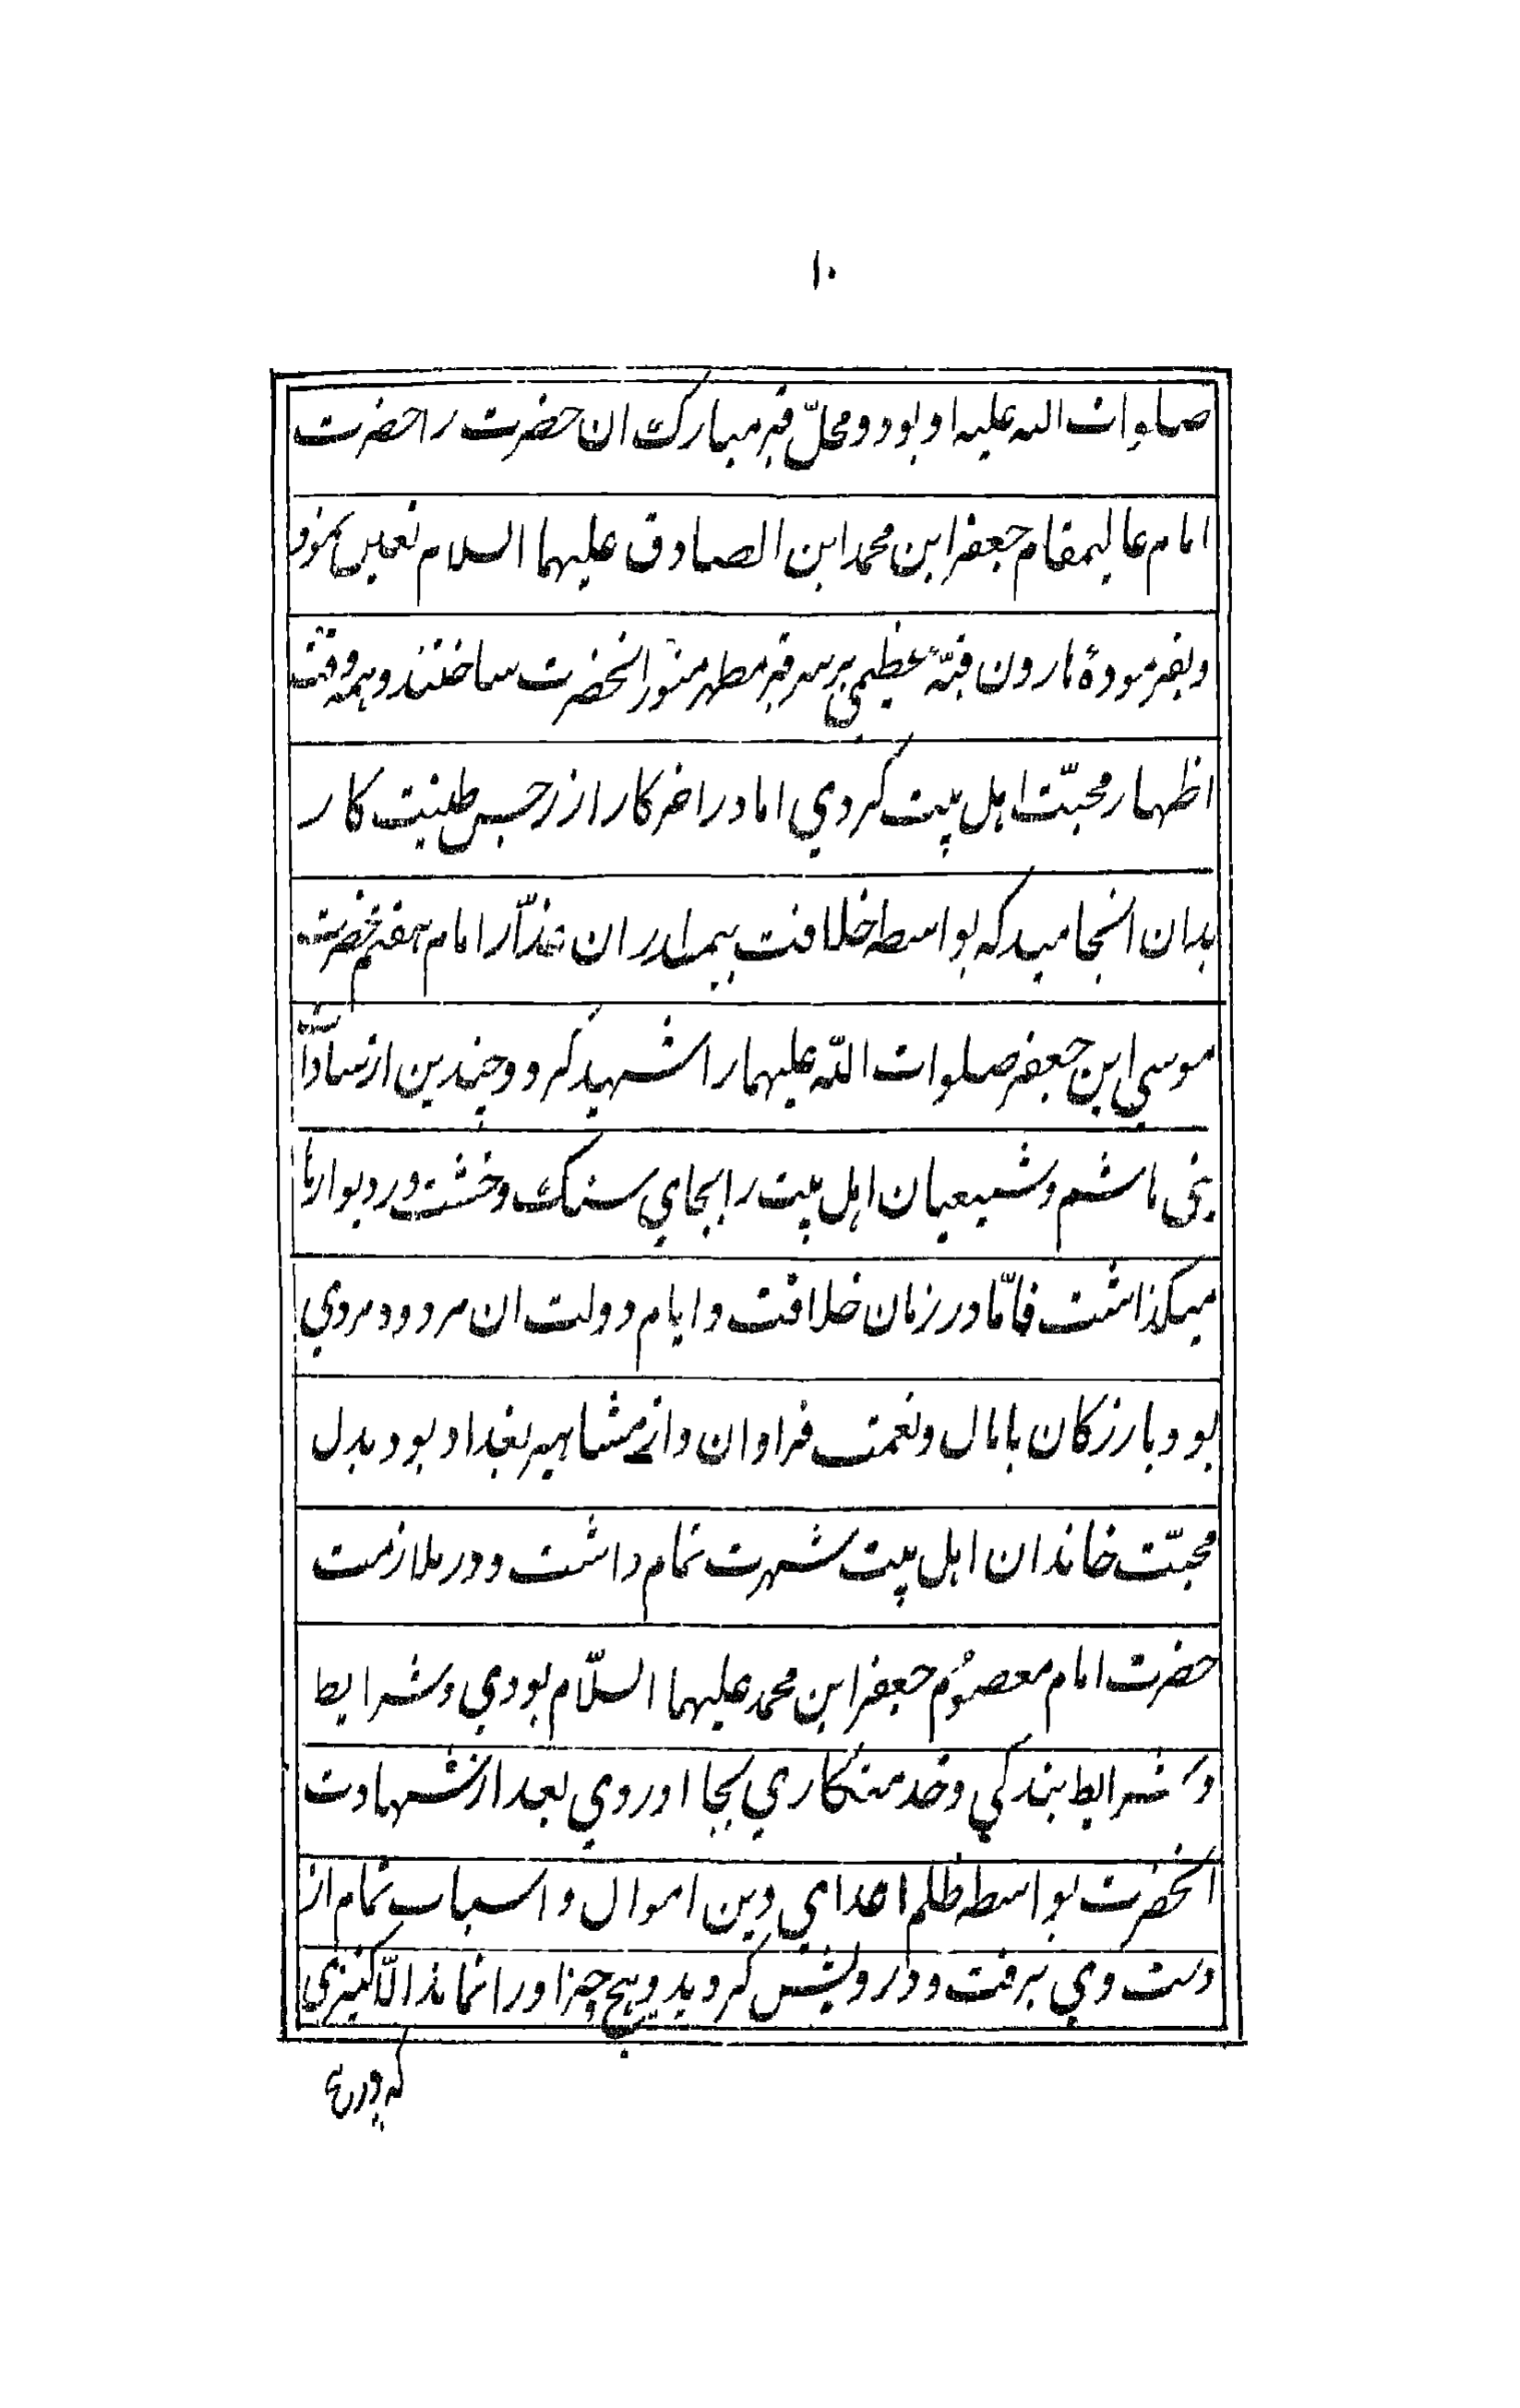 ۱۰
صلوات الله علیه او بود و محلّ قبر مبارک ان حضرت را حضرت
امام عالیمقام جعفر ابن محمد ابن الصادق علیهما السلام تعیین نمود
و بفرمودهٔ هارون قبّهٔ عظیمی بر سر قبر مطهر منوّر انحضرت ساختند و همه وقت
اظهار محبّت اهل بیت کردي اما در اخر کار از رجس طینت کار
بدان انجامید که بواسطه خلافت ان غدّار امام هفتم حضرت
موسي ابن جعفر صلوات اللّه علیهما را شهید کرد و چندین از سادات
بنی هاشم و شیعیان اهل بیت را بجاي سنک و خشت در دیوارها
میکذاشت فامّا در زمان خلافت و ایام دولت ان مردود مردي
بود بازرکان با مال و نعمت فراوان و از مشاهیر بغداد بود بدل
محبّت خاندان اهل بیت شهرت تمام داشت و در ملازمت
حضرت امام معصُوم جعفر ابن محمد علیهما السلّام بودي و شرایط
و شرایط بندکي و خدمتکاري بجا اوردي بعد از شهادت
انحضرت بواسطه ظلم اعداي دین اموال و اسباب تمام از
دست وي برفت و درویش کردید و هیچ چیز او را نماند الّا کنیزی
که در